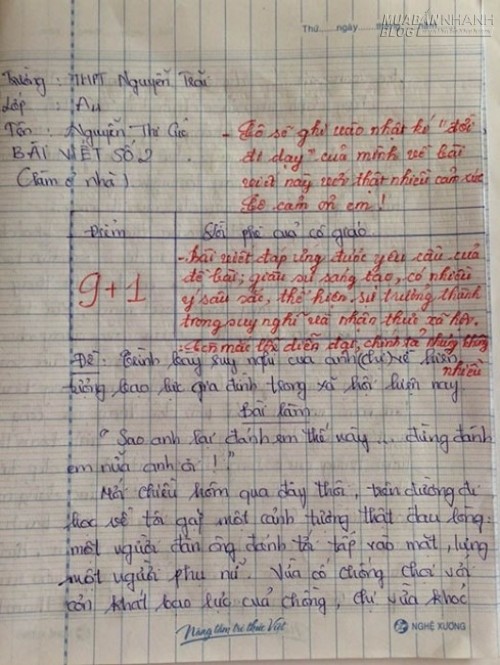 MUABANNHANH
BLOG
Thứ ... ngày
Trường : THPT Nguyễn Trãi
Lớp : A4
Tên : Nguyễn Thị
BÀI VIẾT SỐ 2
(làm ở nhà)
- Cô sẽ ghi vào nhật kí "đời
đi dạy" của mình về bài
viết này với thật nhiều cảm xúc
Cô cảm ơn em !
Điểm
Lời phê của cô giáo
9+1
- Bài viết đáp ứng được yêu cầu của
đề bài; giàu sự sáng tạo, có nhiều
ý sâu sắc, thể hiện sự trưởng thành
trong suy nghĩ và nhận thức xã hội.
- Còn mắc lỗi diễn đạt, chính tả nhưng không
nhiều
Đề : Trình bày suy nghĩ của anh(chị) về hiện
tượng bạo lực gia đình trong xã hội hiện nay
Bài làm
" Sao anh lại đánh em thế này ... đừng đánh
em nữa anh ơi ! "
Mới chiều hôm qua đây thôi, trên đường đi
học về tôi gặp một cảnh tượng thật đau lòng:
một người đàn ông đánh tới tấp vào mặt, lưng
một người phụ nữ. Vừa cố chống chọi với
cơn khát bạo lực của chồng, chị vừa khóc
Nâng tầm tri thức Việt
NGHỆ XƯƠNG